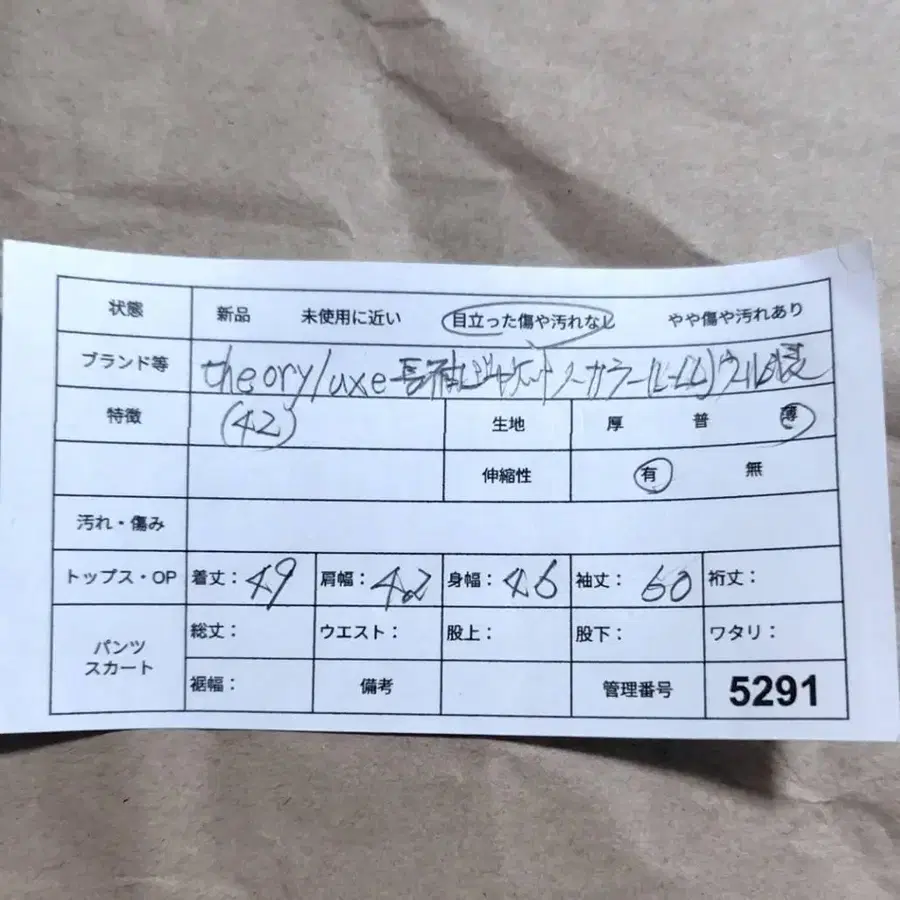 状態 新品 未使用に近い 目立った傷や汚れなし やや傷や汚れあり
ブランド等 theory luxe 長袖ジャケット ノーカラー ウール
特徴 (42) 生地 厚 普 薄
伸縮性 有 無
汚れ・傷み
トップス・OP 着丈: 49 肩幅: 42 身幅: 46 袖丈: 60 裄丈:
パンツ スカート 総丈: ウエスト: 股上: 股下: ワタリ:
裾幅: 備考 管理番号 5291